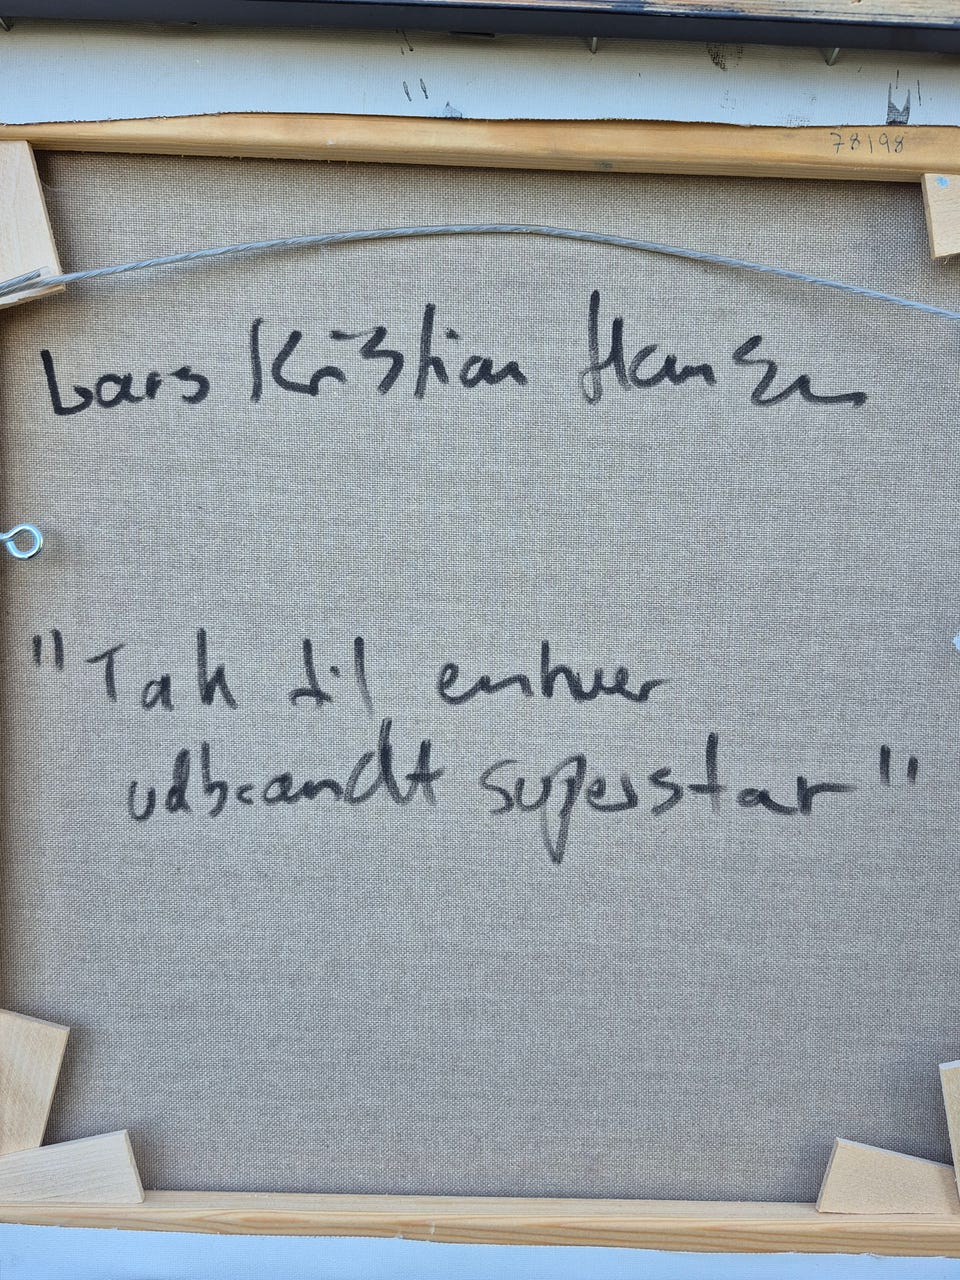 78198
Lars Kristian Hansen
"Tak til enhver
udbrændt superstar"